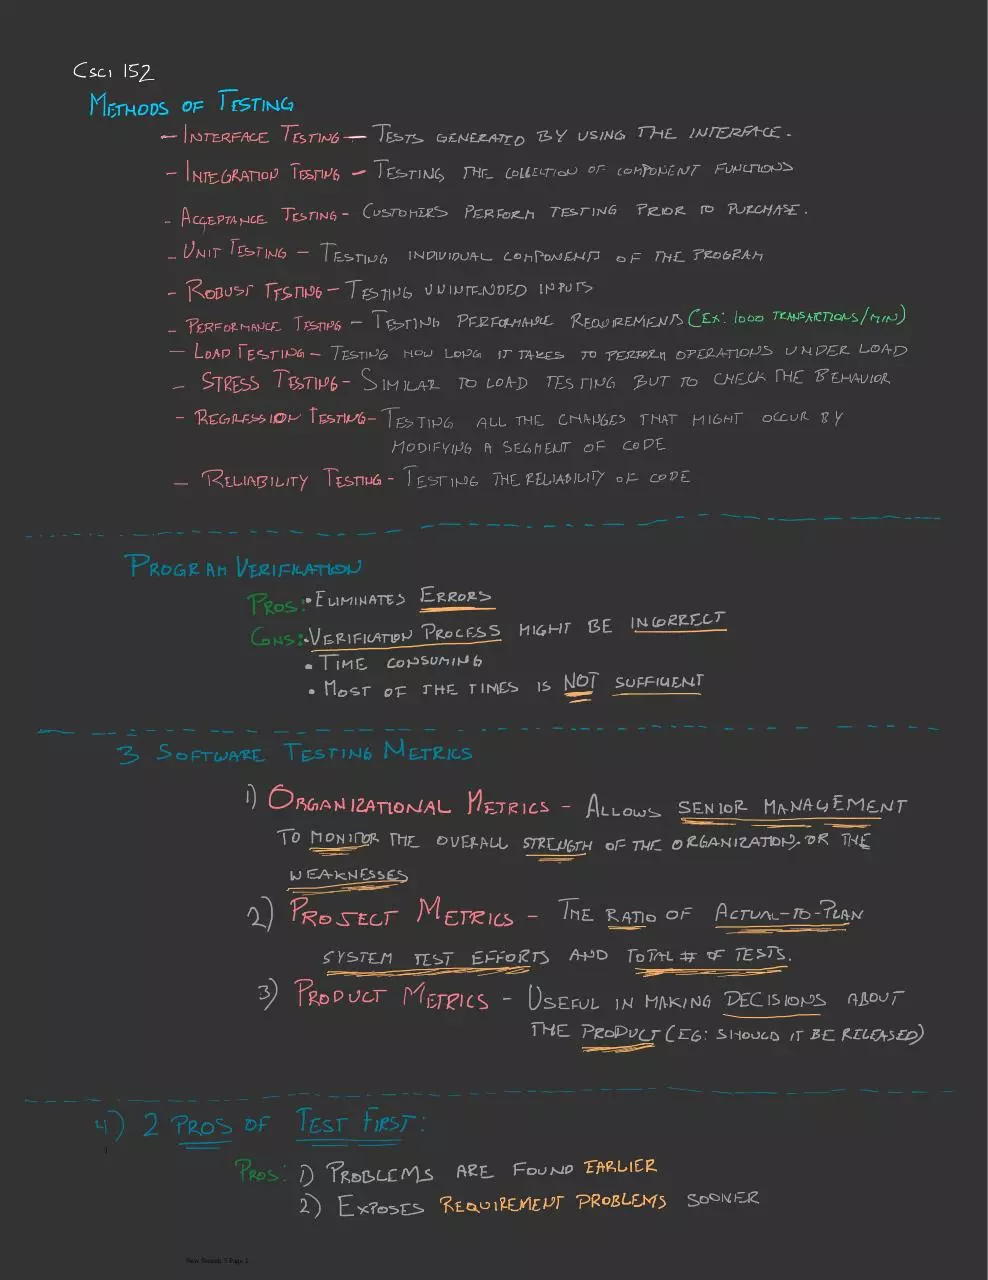 Csci 152
METHODS OF TESTING
- INTERFACE TESTING - TESTS GENERATED BY USING THE INTERFACE.
- INTEGRATION TESTING - TESTING THE COLLECTION OF COMPONENT FUNCTIONS
- ACCEPTANCE TESTING - CUSTOMERS PERFORM TESTING PRIOR TO PURCHASE.
- UNIT TESTING - TESTING INDIVIDUAL COMPONENTS OF THE PROGRAM
- ROBUST TESTING - TESTING UNINTENDED INPUTS
- PERFORMANCE TESTING - TESTING PERFORMANCE REQUIREMENTS (EX: 1000 TRANSACTIONS/MIN)
- LOAD TESTING - TESTING HOW LONG IT TAKES TO PERFORM OPERATIONS UNDER LOAD
- STRESS TESTING - SIMILAR TO LOAD TESTING BUT TO CHECK THE BEHAVIOR
- REGRESSION TESTING - TESTING ALL THE CHANGES THAT MIGHT OCCUR BY
MODIFYING A SEGMENT OF CODE
- RELIABILITY TESTING - TESTING THE RELIABILITY OF CODE
PROGRAM VERIFICATION
PROS: • ELIMINATES ERRORS
CONS: • VERIFICATION PROCESS MIGHT BE INCORRECT
• TIME CONSUMING
• MOST OF THE TIMES IS NOT SUFFICIENT
3 SOFTWARE TESTING METRICS
1) ORGANIZATIONAL METRICS - ALLOWS SENIOR MANAGEMENT
TO MONITOR THE OVERALL STRENGTH OF THE ORGANIZATION, OR THE
WEAKNESSES
2) PROJECT METRICS - THE RATIO OF ACTUAL-TO-PLAN
SYSTEM TEST EFFORTS AND TOTAL # OF TESTS.
3) PRODUCT METRICS - USEFUL IN MAKING DECISIONS ABOUT
THE PRODUCT (EG: SHOULD IT BE RELEASED)
4) 2 PROS OF TEST FIRST:
PROS: 1) PROBLEMS ARE FOUND EARLIER
2) EXPOSES REQUIREMENT PROBLEMS SOONER